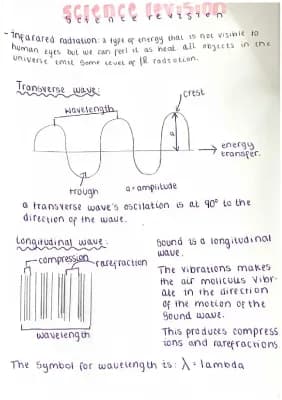 science revision
science revision
- infarared radiation: a type of energy that is not visible to
human eyes but we can feel it as heat. all objects in the
universe emit some level of IR radiation.
Transverse wave:
wavelength
crest
a
energy
transfer.
trough
a=amplitude
a transverse wave's oscilation is at 90° to the
direction of the wave.
Longitudinal wave:
compression
rarefraction
wavelength
Sound is a longitudinal
wave.
The vibrations makes
the air molicules vibr-
ate in the direction
of the motion of the
sound wave.
This produces compress
ions and rarefractions.
The symbol for wavelength is: λ = lambda